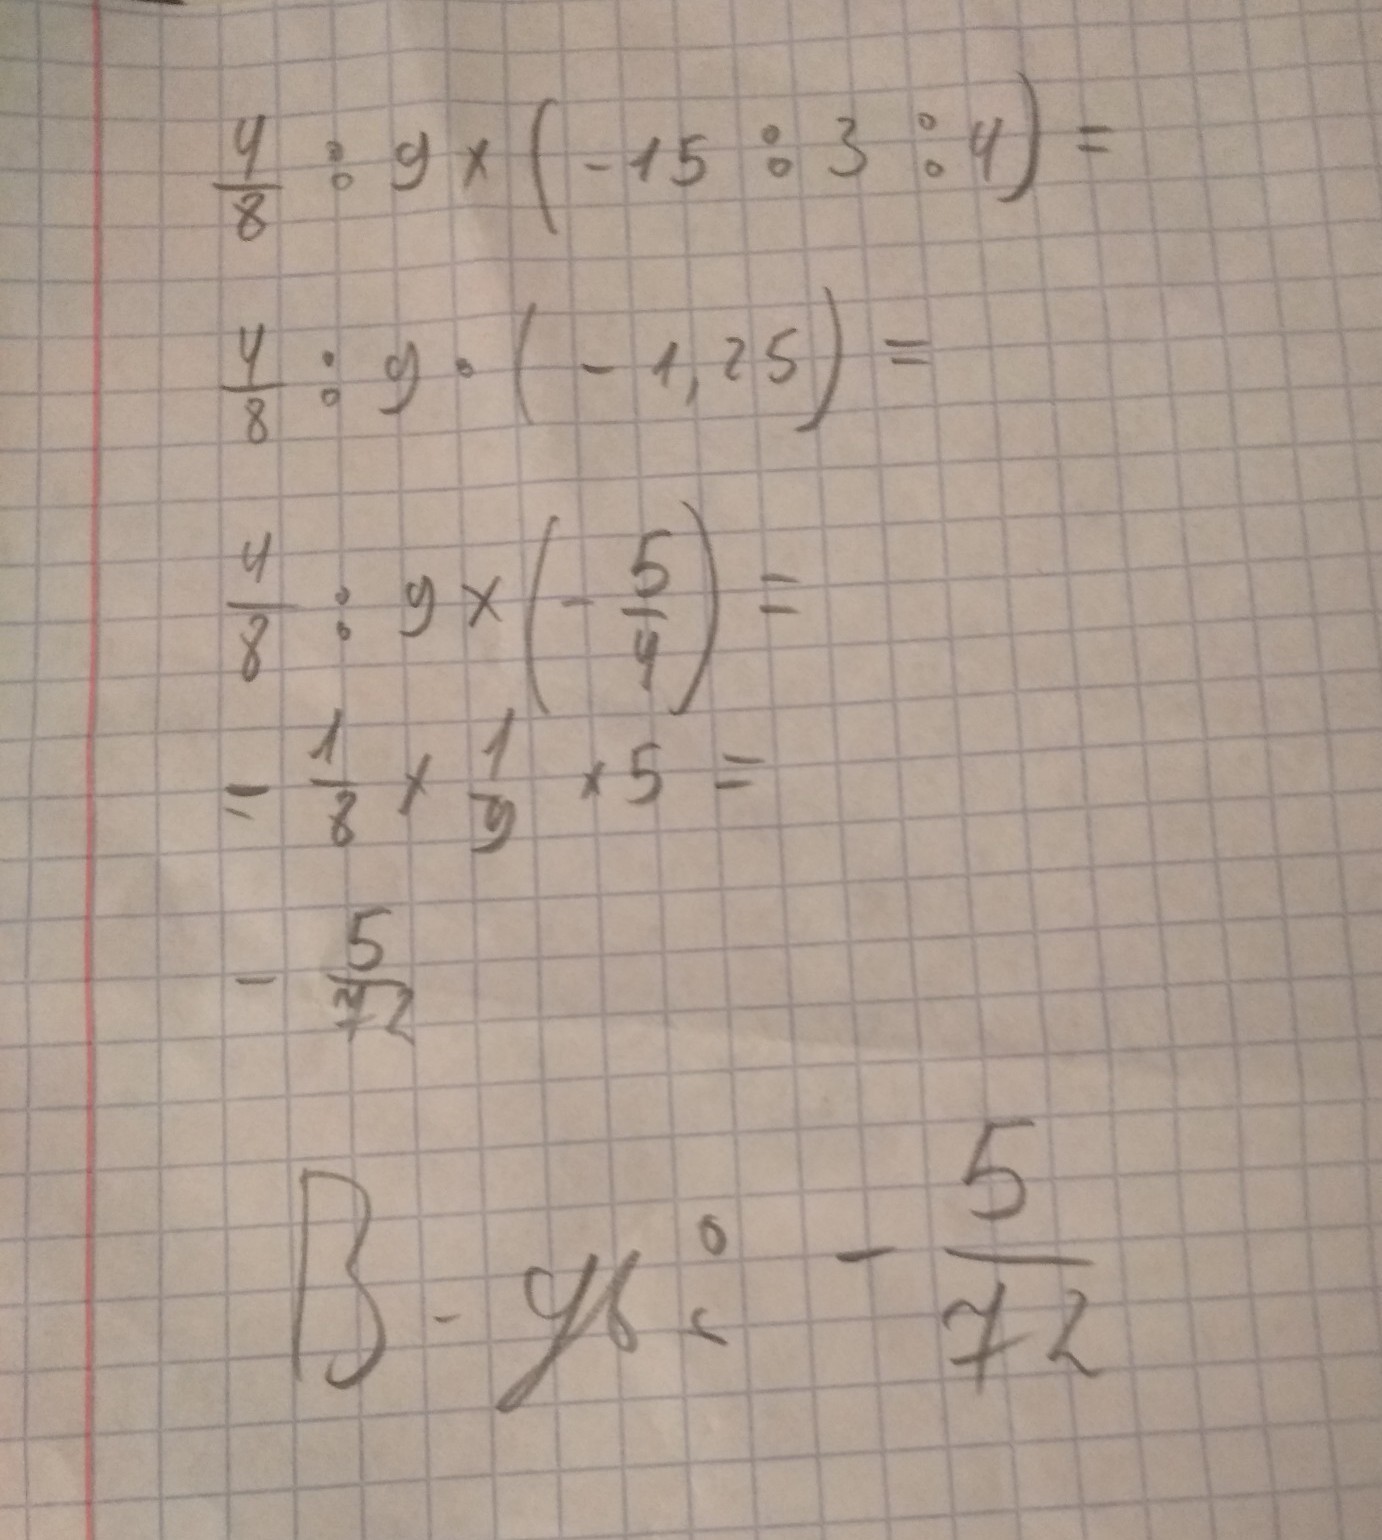 4/8 : 9 × (-15 : 3 : 4) =
4/8 : 9 · (-1,25) =
4/8 : 9 × (-5/4) =
= 1/8 × 1/9 × 5 =
- 5/72
В-дь: - 5/72